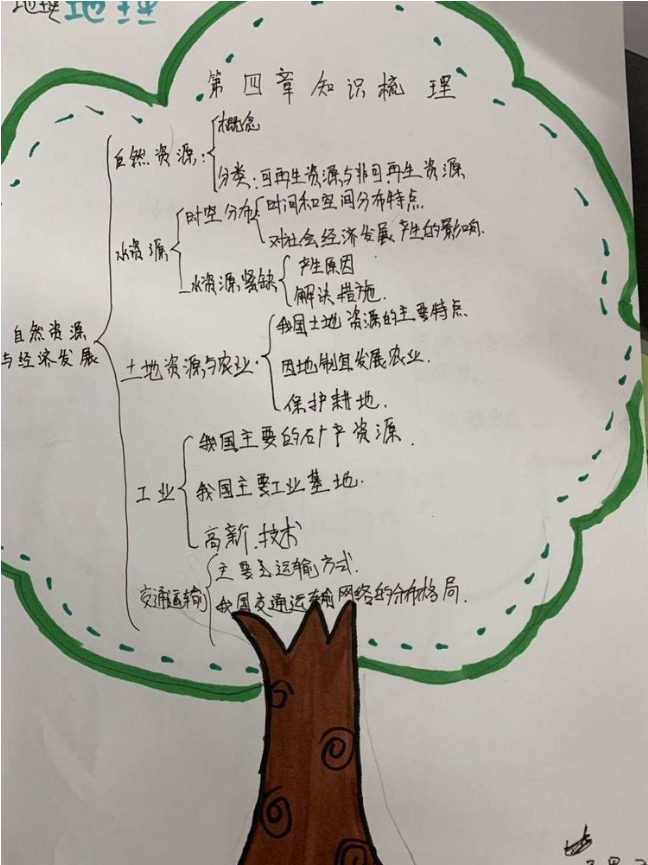 地理 地理
第四章知识梳理
自然资源:
概念
分类:可再生资源与非可再生资源
水资源
时空分布
时间和空间分布特点.
对社会经济发展产生的影响.
水资源紧缺
产生原因
解决措施.
自然资源
与经济发展
土地资源与农业.
我国土地资源的主要特点
因地制宜发展农业.
保护耕地.
工业
我国主要的矿产资源.
我国主要工业基地.
高新.技术
交通运输
主要运输方式.
我国交通运输网络的分布格局.